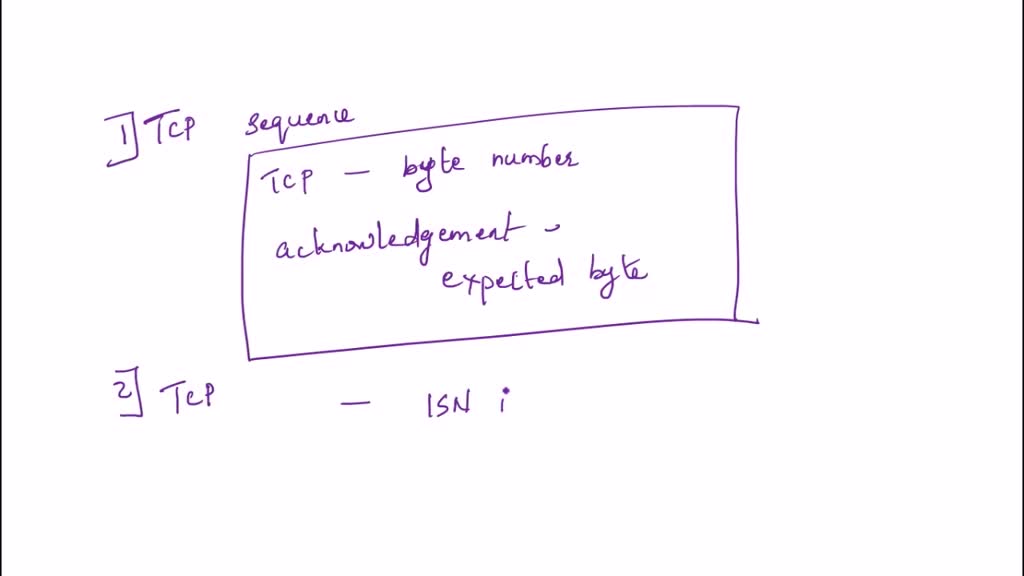 1] TCP sequence
TCP — byte number
acknowledgement -
expected byte
2] TCP — ISN i